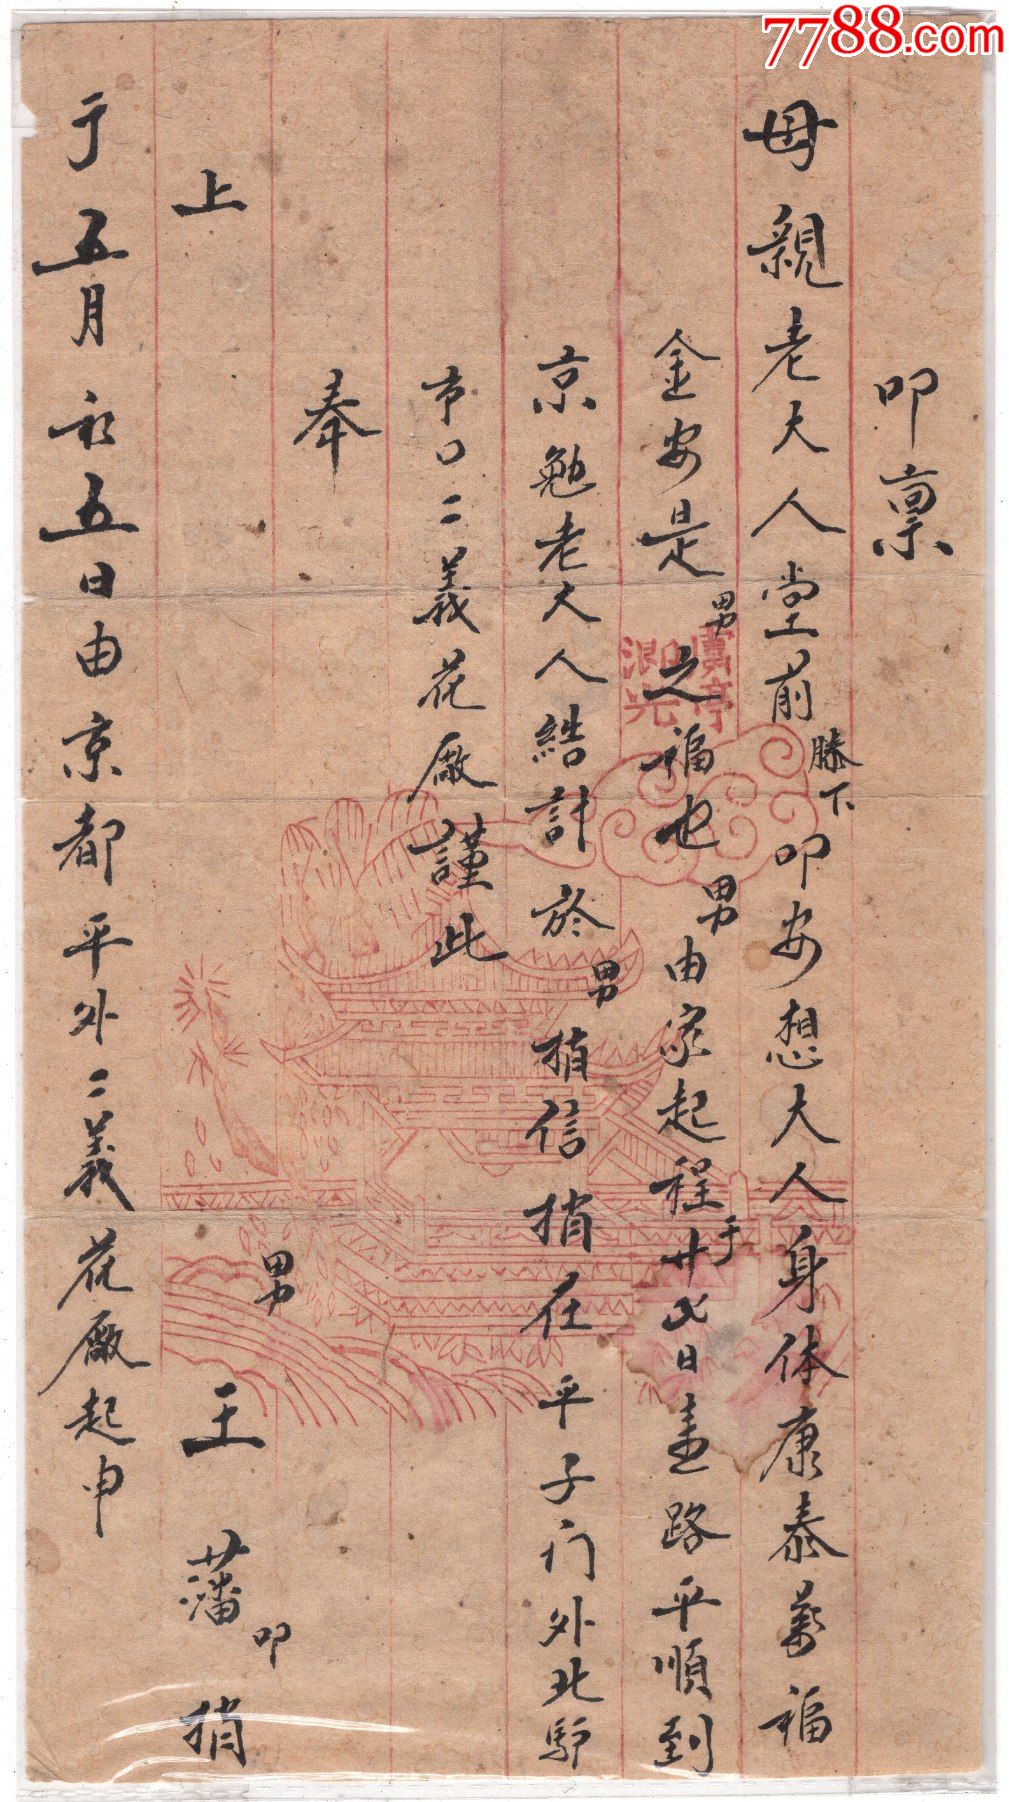 7788.com
叩禀
母親老大人堂前膝下叩安想大人身体康泰萬福
金安是男之福也男由家起程于廿八日走路平順到
京勉老大人結計於男捎信捎在平子门外北驴
市口二義花廠謹此
奉
上
男王藩叩捎
于五月初五日由京都平外二義花廠起申